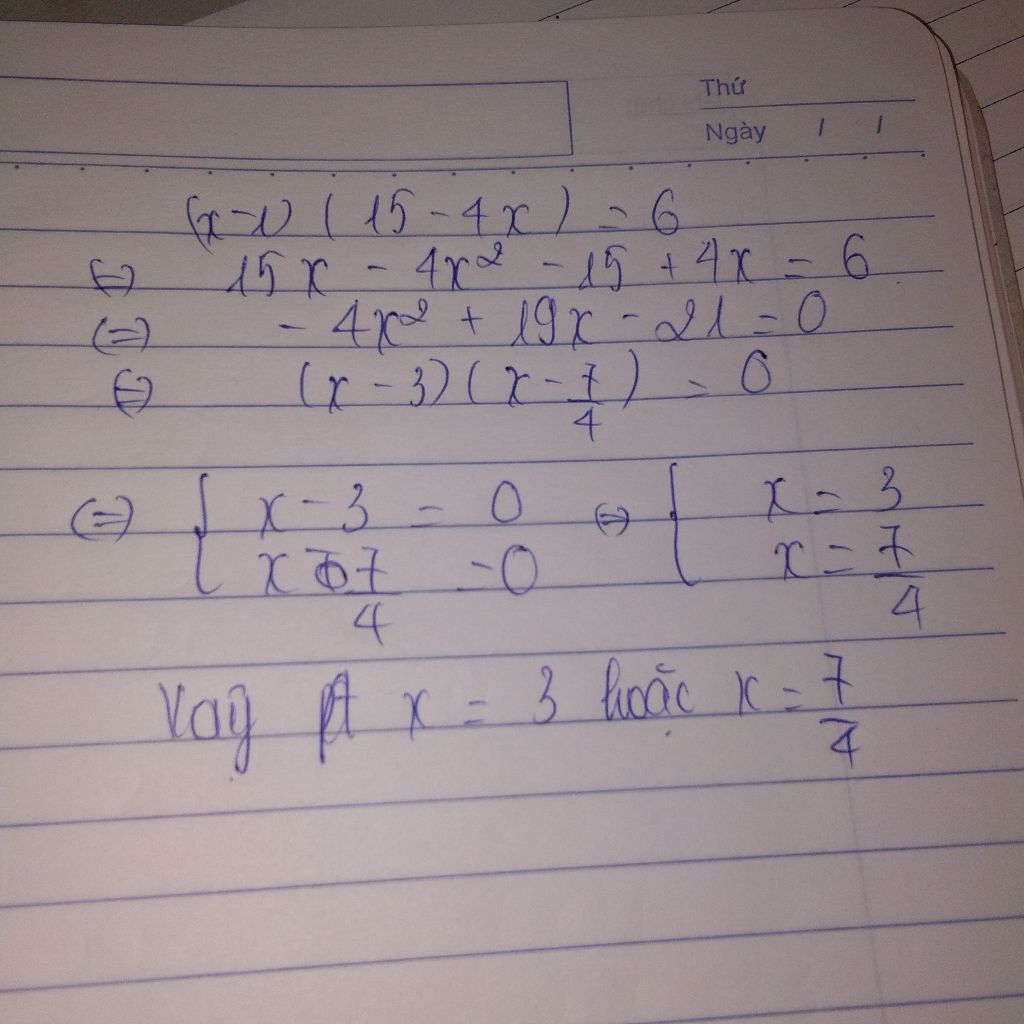 Thứ
Ngày / /
(x-1) ( 15 - 4x ) = 6
⇔ 15x - 4x² - 15 + 4x = 6
⇔ - 4x² + 19x - 21 = 0
⇔ (x - 3) ( x - 7/4 ) = 0
⇔ [ x - 3 = 0 ⇔ [ x = 3
x 7/4 = 0 x = 7/4
Vaỹ pt x = 3 hoặc x = 7/4